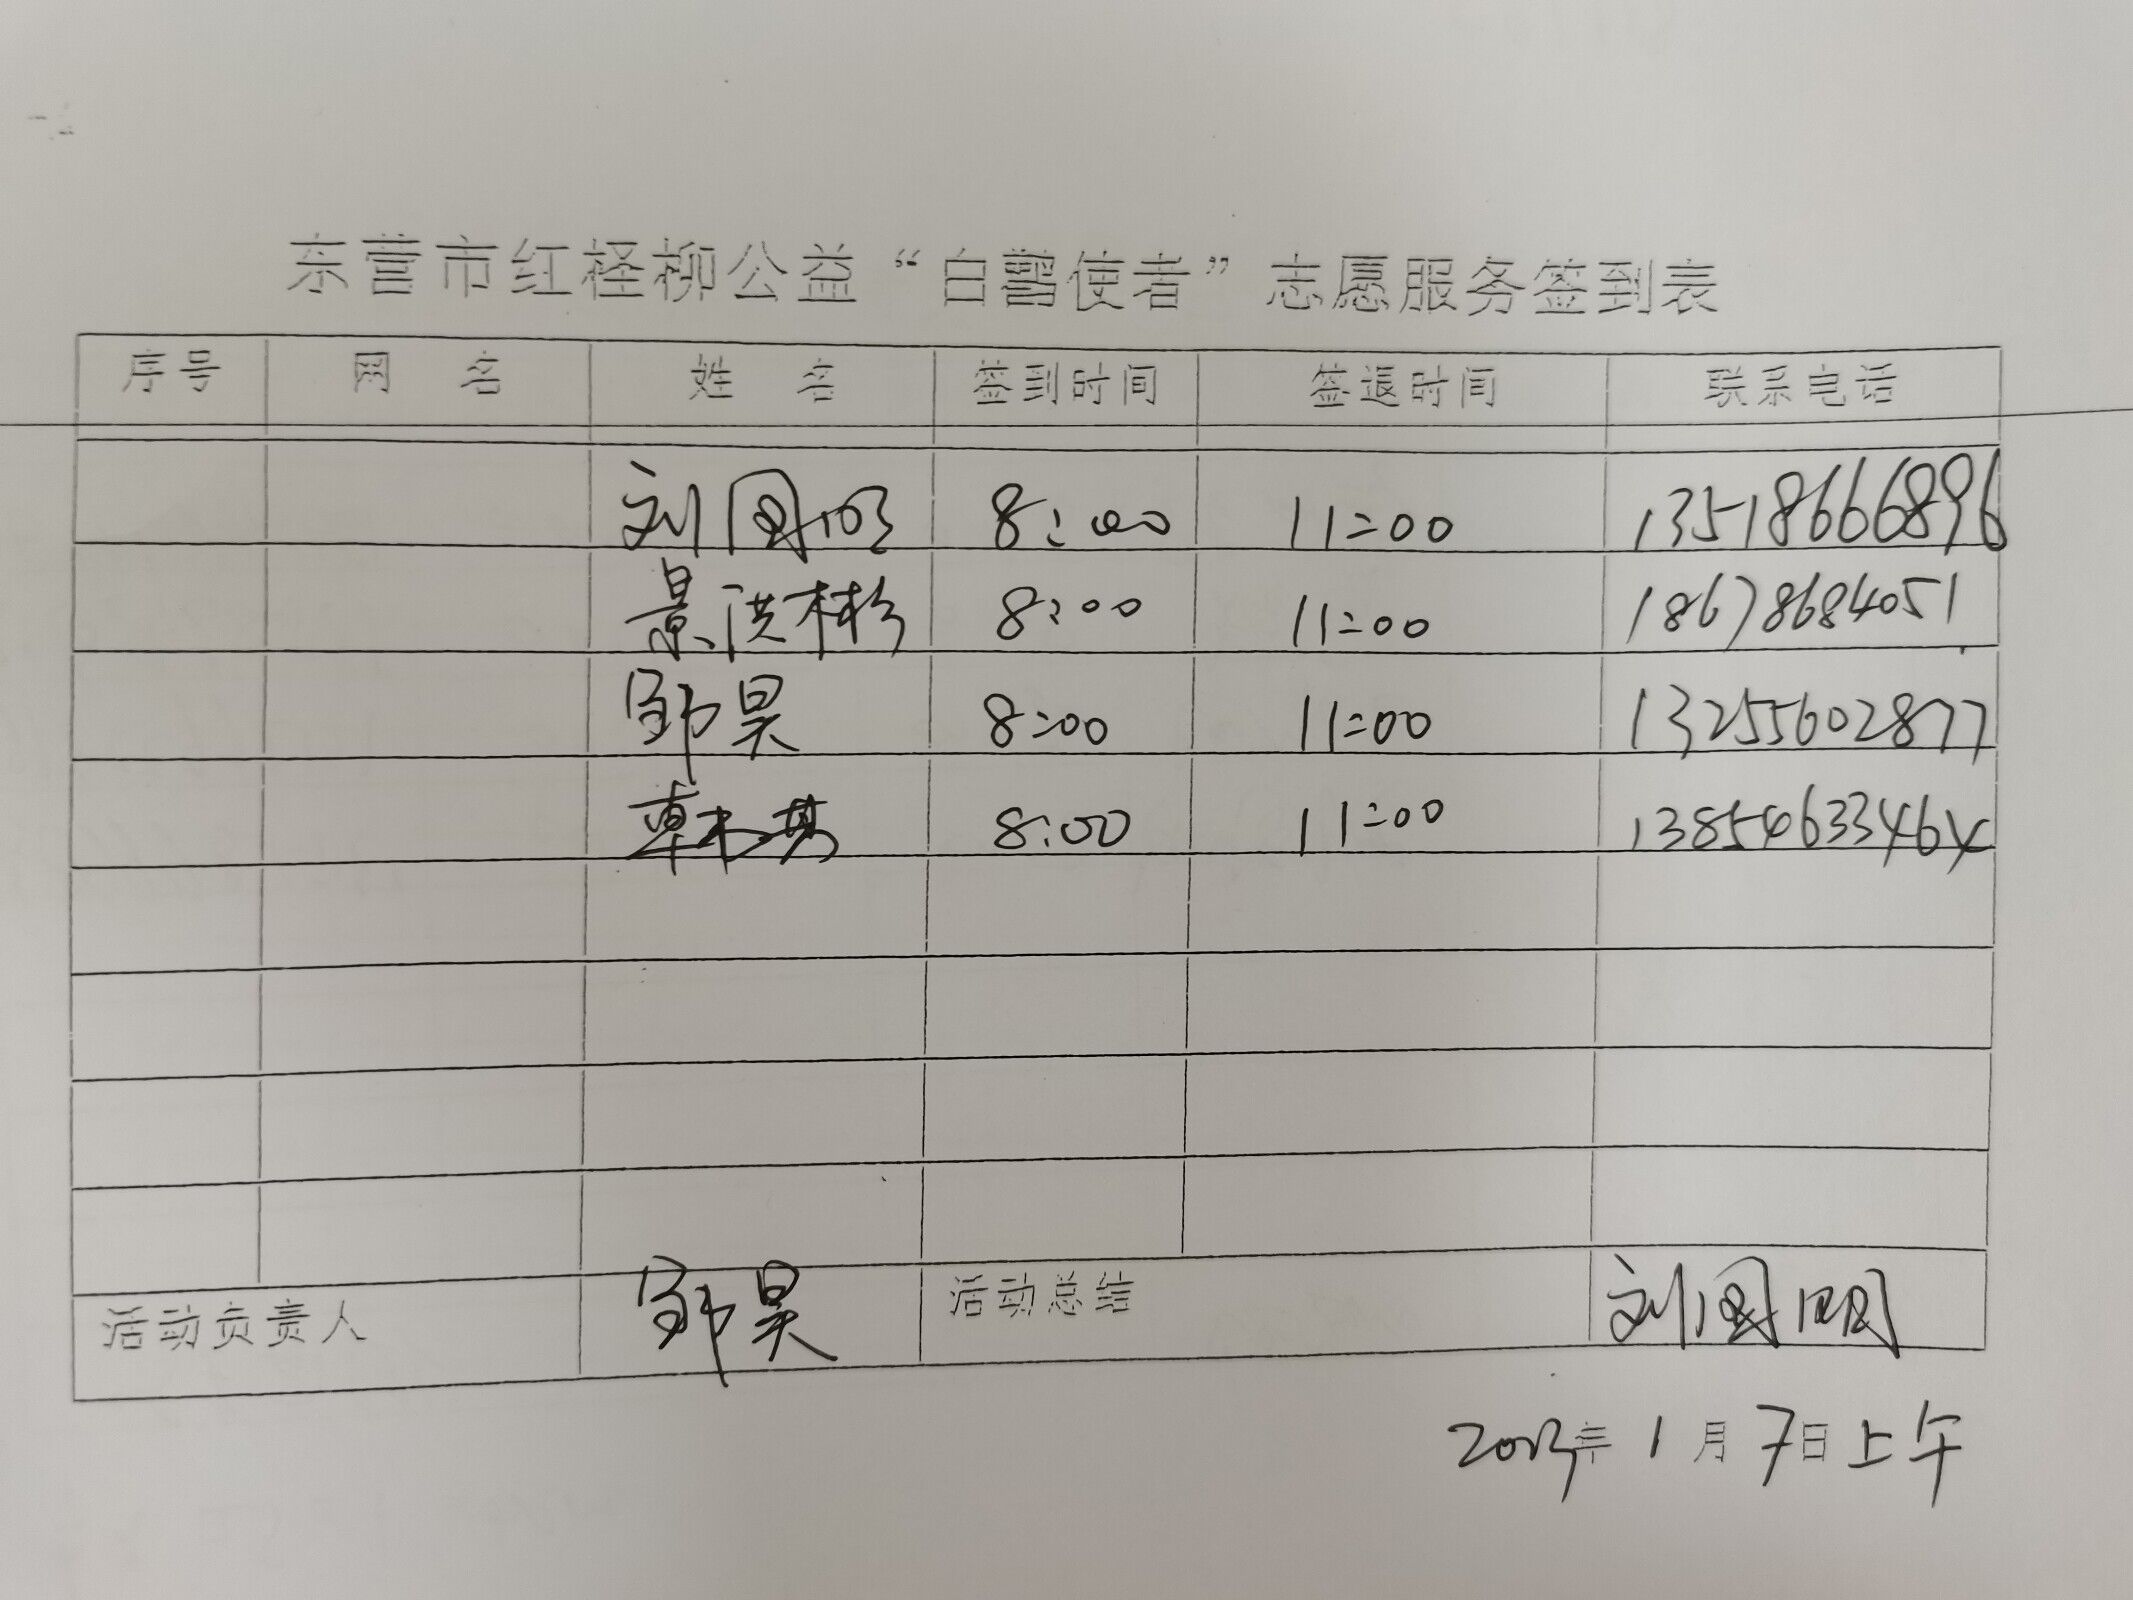 东营市红柽柳公益“白鹭使者”志愿服务签到表
序号 网名 姓名 签到时间 签退时间 联系电话
刘国明 8:00 11:00 13518666896
景洪彬 8:00 11:00 18678684051
邹昊 8:00 11:00 13255602877
8:00 11:00 13854633464
活动负责人 邹昊 活动总结 刘国明
2023年1月7日上午